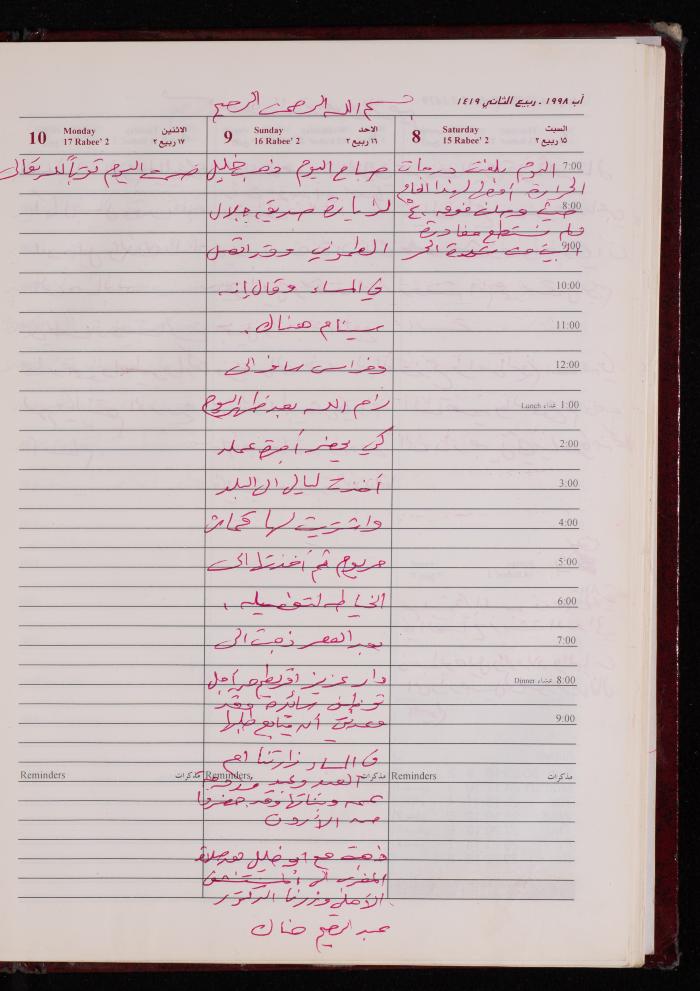 آب ١٩٩٨ . ربيع الثاني ١٤١٩
بسم الله الرحمن الرحيم
السبت
١٥ ربيع ٢
8
Saturday
15 Rabee' 2
7:00 اليوم بلغت درجات
الحرارة أقصى لهذا العام
8:00 حيث وصلت فوق ٤٠°
فلم نستطع مغادرة
9:00 البيت من شدة الحر
10:00
11:00
12:00
1:00 غداء Lunch
2:00
3:00
4:00
5:00
6:00
7:00
8:00 عشاء Dinner
9:00
Reminders مذكرات
الاحد
١٦ ربيع ٢
9
Sunday
16 Rabee' 2
صباح اليوم ذهب خليل
لزيارة صديقه جلال
وقد اتصل
في المساء وقال إنه
سينام هناك .
وفراس سافر الى
رام الله بعد ظهر اليوم
كي يحضر أجرة عمله
أخذت ليالي الى البلد
واشتريت لها قماش
مريول ثم أخذتها الى
الخياطه لتفصيله .
بعد العصر ذهبت الى
دار عزيز من أجل
سائدة وقد
في المساء زارتنا ام
العبد وعبد
Reminders مذكرات
عمه وبناتها وقد حضروا
من الأردن
ذهبت مع ابو خليل بعد صلاة
المغرب الى المستشفى
الأهلي وزرنا الدكتور
عبد هناك
الاثنين
١٧ ربيع ٢
10
Monday
17 Rabee' 2
صمت اليوم لله تعالى
Reminders مذكرات